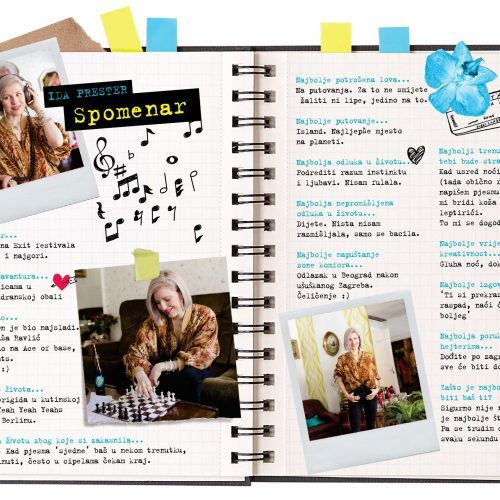 IDA PRESTER
Spomenar
na Exit festivala
i najgori.
avantura...
icama u
dranskoj obali
n je bio najslađi.
ša Ravlić
o na Ace of base,
nts.
:)
života...
rigida u kutinskoj
Yeah Yeah Yeahs
Berlinu.
životu zbog koje si zakasnila...
Kad pjesma 'sjedne' baš u nekom trenutku,
inuti, često u cipelama čekam kraj.
Najbolje potrošena lova...
Na putovanja. Za to ne smijete
žaliti ni lipe, jedino na to.
Najbolje putovanje...
Island. Najljepše mjesto
na planeti.
Najbolja odluka u životu...
Podrediti razum instinktu
i ljubavi. Nisam fulala.
Najbolja nepromišljena
odluka u životu...
Dijete. Nista nisam
razmišljala, samo se bacila.
Najbolje napuštanje
zone komfora...
Odlazak u Beograd nakon
ušuškanog Zagreba.
Čeličenje :)
Najbolji trenu
tebi bude stra
Kad usred noći
(tada obično r
napišem pjesmu
mi bridi koža
leptirići.
To mi se dogod
Najbolje vrije
kreativnost...
Gluha noć, dok
Najbolje izgov
'Ti si prekras
raspad, naći ć
boljeg'
Najbolja poruk
hejterima...
Dođite po zagr
sve će biti do
Zašto je najbo
biti baš ti?
Sigurno nije n
je najbolje št
Pa se trudim c
svaku sekundu